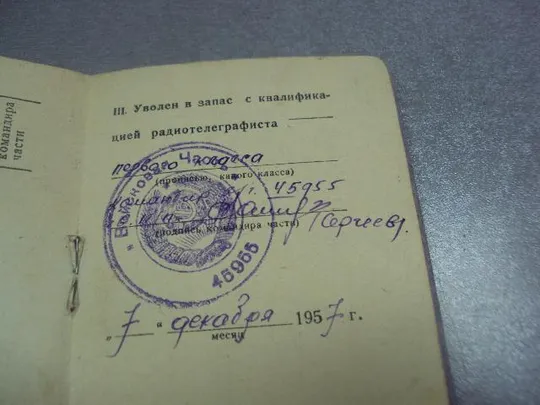 командира
части
III. Уволен в запас с квалифика-
цией радиотелеграфиста
первого класса
(прописью, какого класса)
командир в. ч. 45955
Сергеев
(подпись командира части)
Войсковая Ч
45955
„ 7 " декабря 1957 г.
месяц